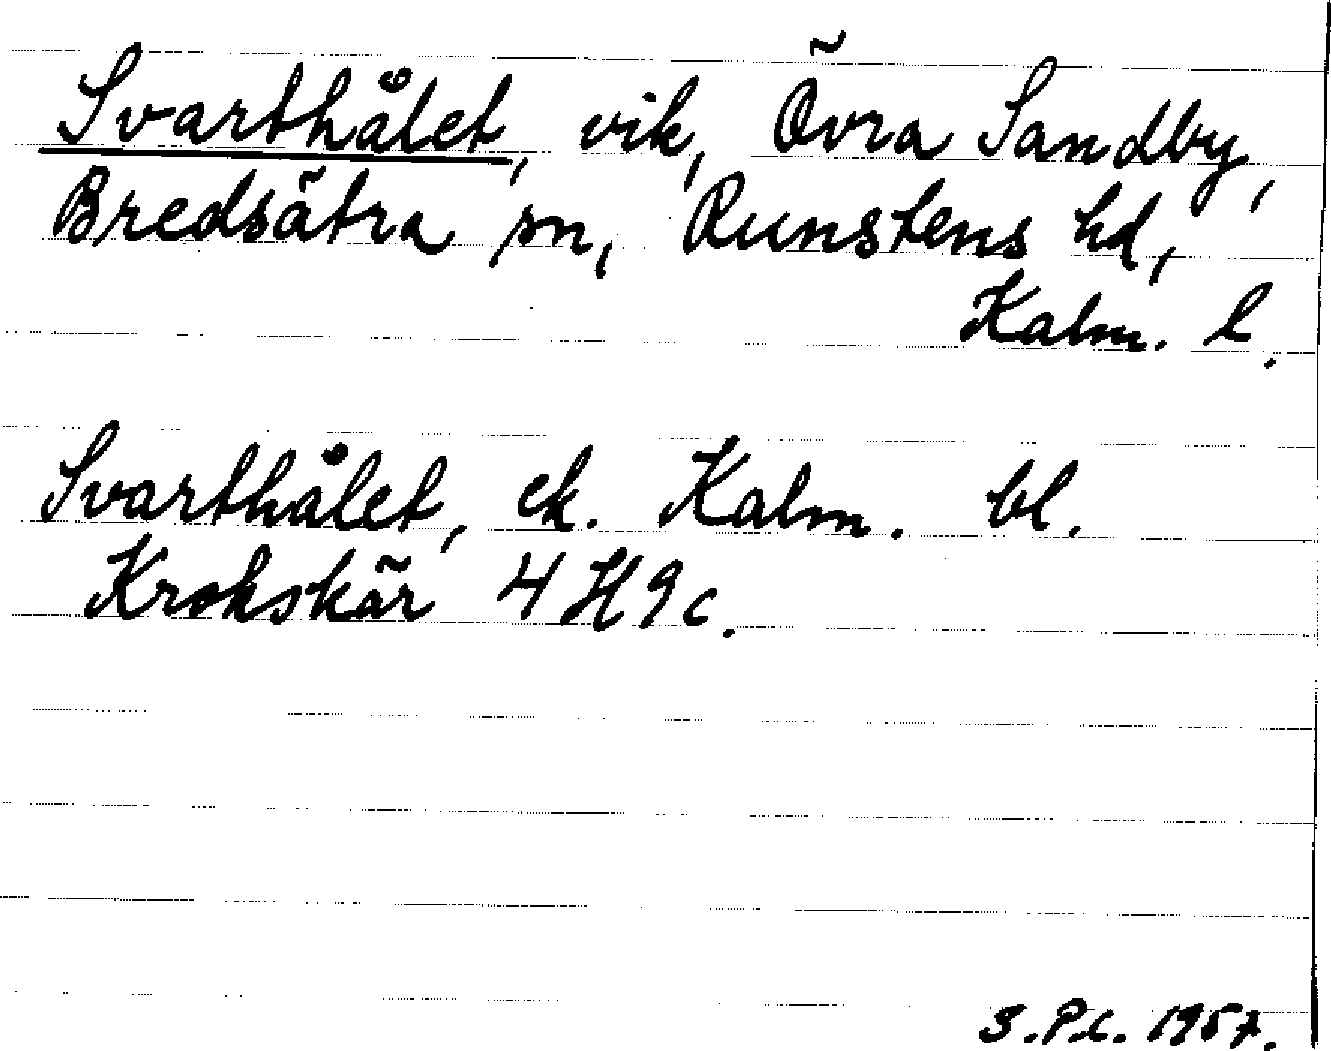 Svarthålet, vik, Övra Sandby,
Bredsätra sn, Runstens hd,
Kalm. l.
Svarthålet, ek. Kalm. bl.
Krokskär 4H9c.
S.P.L. 1957.